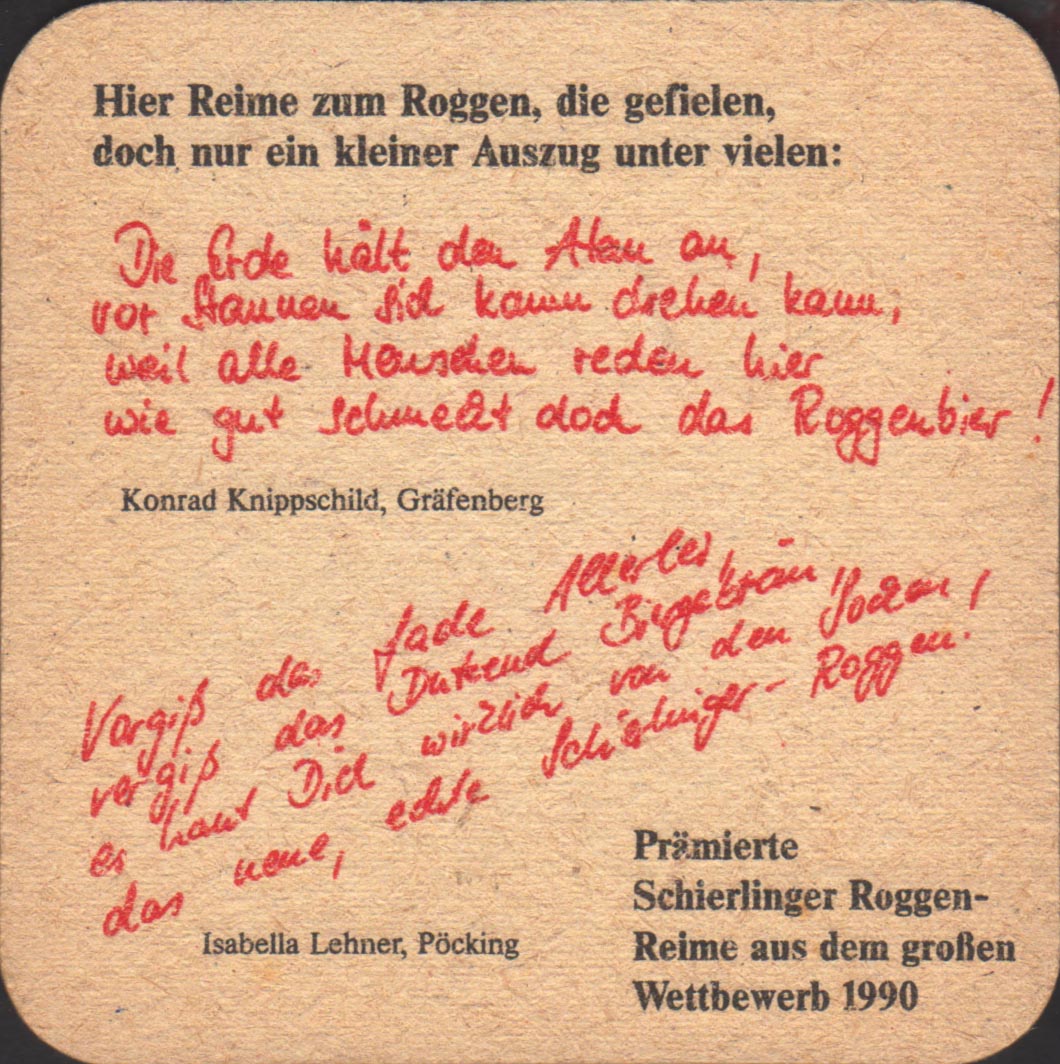 Hier Reime zum Roggen, die gefielen,
doch nur ein kleiner Auszug unter vielen:
Die Erde hält den Atem an,
vor Staunen sich kaum drehen kann,
weil alle Menschen reden hier
wie gut schmeckt doch das Roggenbier!
Konrad Knippschild, Gräfenberg
Vergiß das fade Allerlei,
vergiß das Dutzend Biergebräu,
es haut Dich wirklich von den Socken,
das neue, echte Schierlinger-Roggen.
Isabella Lehner, Pöcking
Prämierte
Schierlinger Roggen-
Reime aus dem großen
Wettbewerb 1990